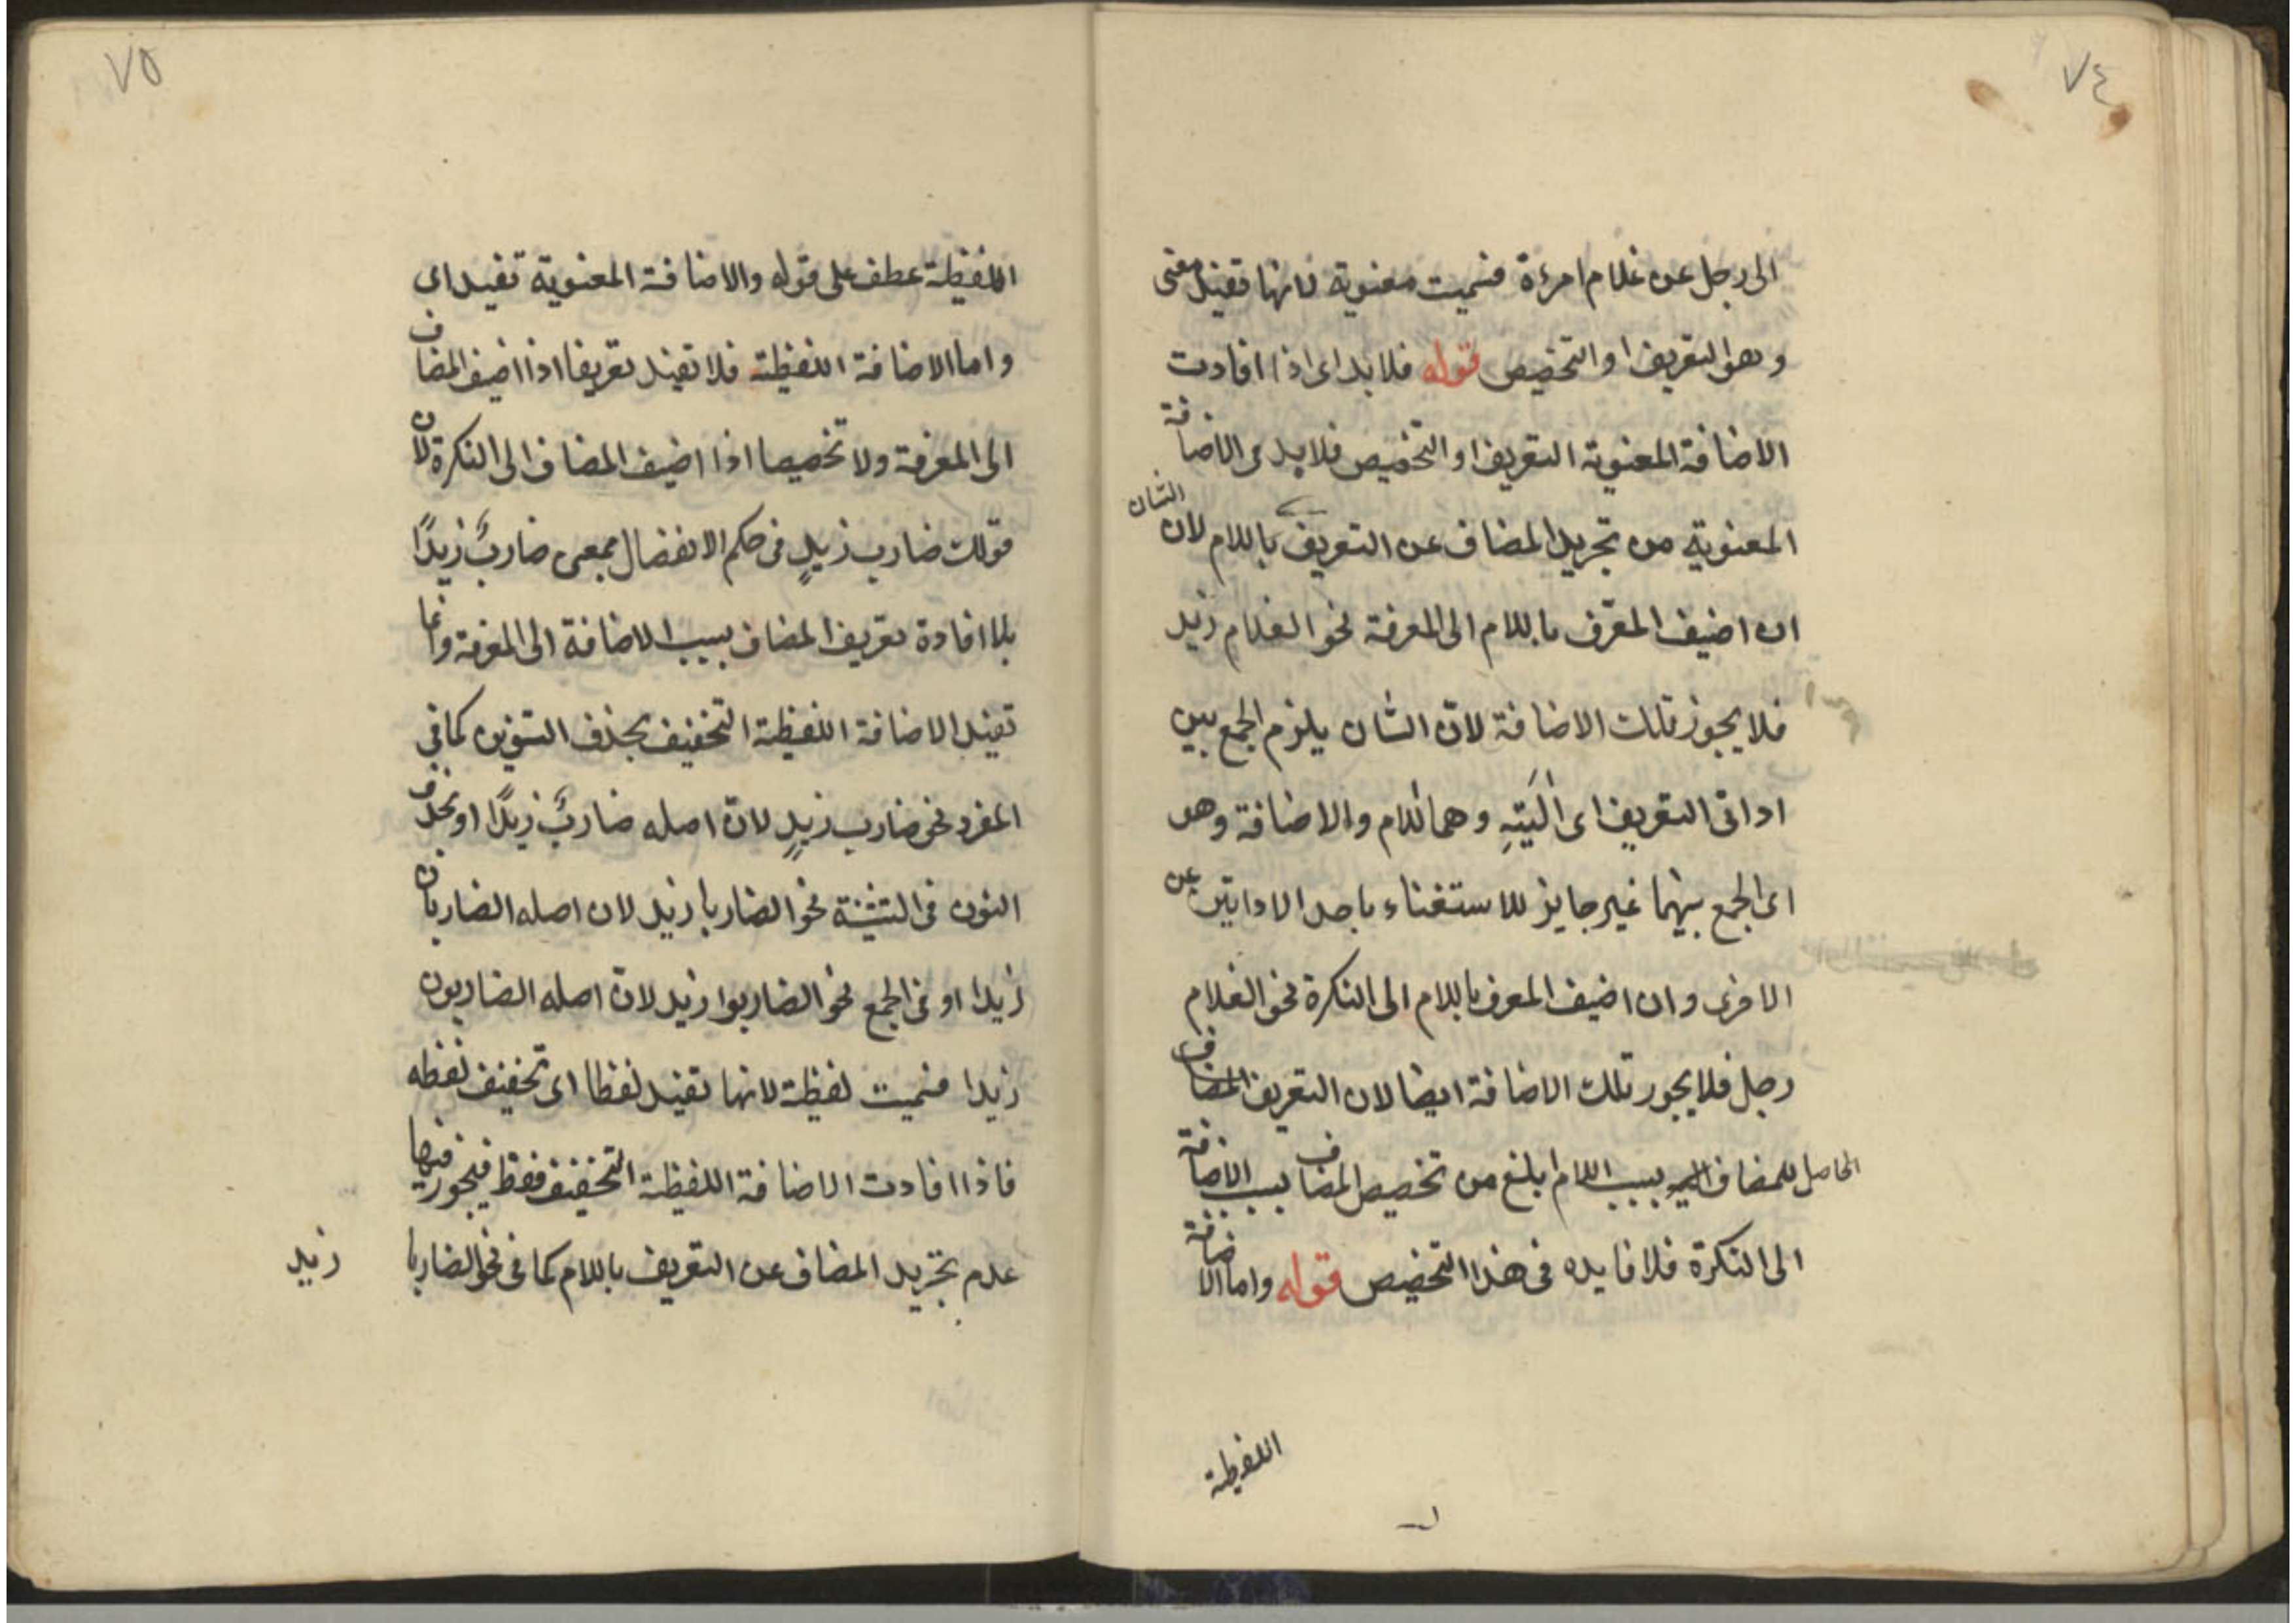 ٧٤
الى رجل عن غلام امرءة فسميت معنوية لانها تفيد معنى
وهو التعريف او التخصيص قوله فلا بد اى اذا افادت
الاضافة المعنوية التعريف او التخصيص فلا بد فى الاضافة
المعنوية من تجريد المضاف عن التعريف باللام لان الشان
ان اضيف المعرّف باللام الى المعرفة نحو الغلام زيد
فلا يجوز تلك الاضافة لانّ الشان يلزم الجمع بين
اداتى التعريف اى آلَتَيْهِ وهما اللام والاضافة وهو
اى الجمع بينهما غير جايز للاستغناء باحد الاداتين عن
الاخرى وان اضيف المعرف باللام الى النكرة نحو الغلام
رجل فلا يجوز تلك الاضافة ايضا لان التعريف المضاف
الحاصل للمضاف اليه بسبب اللام ابلغ من تخصيص المضاف بسبب الاضافة
الى النكرة فلا فايده فى هذا التخصيص قوله واما الاضافة
اللفظية
٧٥
اللفظية عطف على قوله والاضافة المعنوية تفيد اى
واما الاضافة اللفظية فلا تفيد تعريفا اذا اضيف المضاف
الى المعرفة ولا تخصيصا اذا اضيف المضاف الى النكرة لان
قولك ضارب زيدٍ فى حكم الانفصال بمعى ضاربٌ زيدًا
بلا افادة تعريف المضاف بسبب الاضافة الى المعرفة وانما
تفيد الاضافة اللفظية التخفيف بحذف التنوين كما فى
المفرد نحو ضارب زيدٍ لانّ اصله ضاربٌ زيدًا او بحذف
النون فى التثنية نحو الضاربا زيد لان اصله الضاربان
زيدا او فى الجمع نحو الضاربوا زيد لانّ اصله الضاربون
زيدا فسميت لفظية لانها تفيد لفظا اى تخفيف لفظه
فاذا افادت الاضافة اللفظية التخفيف فقط فيجوز فيها
عدم تجريد المضاف عن التعريف باللام كما فى نحو الضاربا
زيد